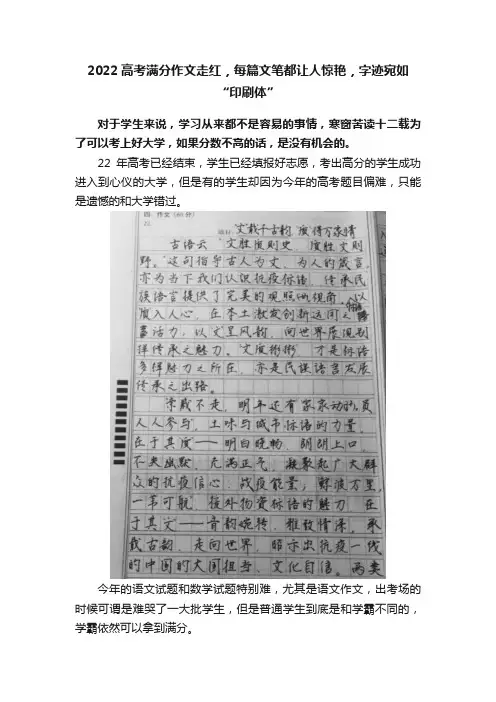 2022高考满分作文走红，每篇文笔都让人惊艳，字迹宛如
“印刷体”
对于学生来说，学习从来都不是容易的事情，寒窗苦读十二载为
了可以考上好大学，如果分数不高的话，是没有机会的。
22 年高考已经结束，学生已经填报好志愿，考出高分的学生成功
进入到心仪的大学，但是有的学生却因为今年的高考题目偏难，只能
是遗憾的和大学错过。
四 作文（60分）
22.
题目：文载千古韵 质得万家情
古语云“文胜质则史，质胜文则
野。”这句指导古人为文、为人的箴言，
亦为当下我们认识抗疫标语、传承民
族语言提供了完美的观照
以
质入人心，在本土激发创新运用之
蓄活力；以文呈风韵，向世界展现别
样传承之魅力。“文质彬彬”才是标语
多样魅力之所在，亦是民族语言发展
传承之出路。
亲戚不走，明年还有
人人参与”，土味与城市标语的力量，
在于其质——明白晓畅，朗朗上口，
不失幽默，充满正气，凝聚起广大群
众的抗疫信心、战疫能量；
一苇可航”，援外物资标语的魅力，在
于其文——音韵婉转，雅致情深，承
载古韵，走向世界，昭示出抗疫一线
的中国的大国担当、文化自信。两类
今年的语文试题和数学试题特别难，尤其是语文作文，出考场的
时候可谓是难哭了一大批学生，但是普通学生到底是和学霸不同的，
学霸依然可以拿到满分。